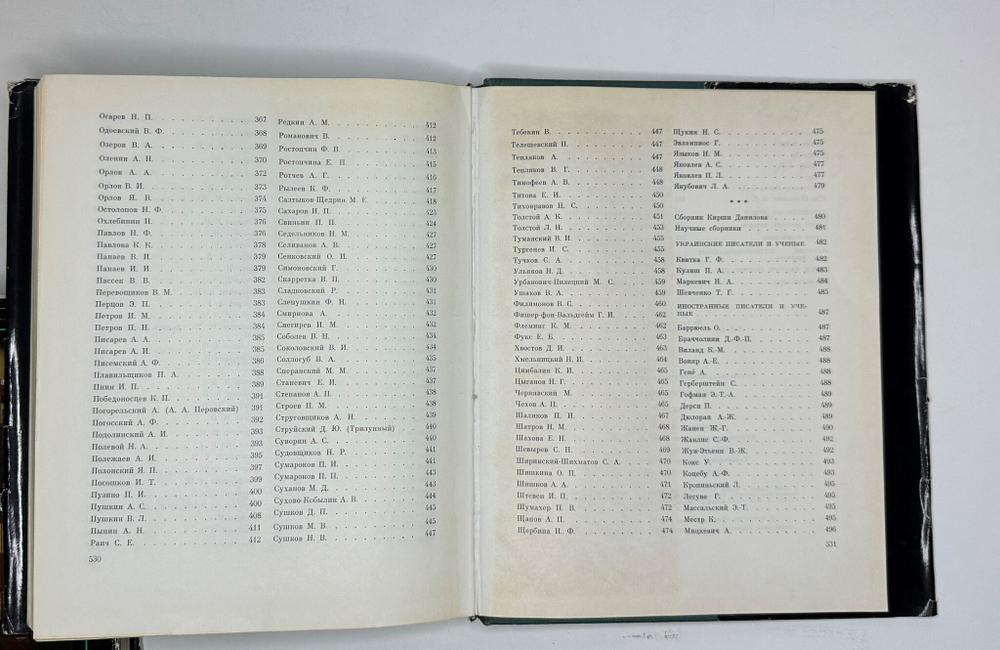 Огарев Н. П. 367
Одоевский В. Ф. 368
Озеров В. А. 369
Оленин А. Н. 370
Орлов А. А. 372
Орлов В. И. 373
Орлов Я. В. 374
Остолопов Н. Ф. 375
Охлебинин Н. 376
Павлов Н. Ф. 376
Павлова К. К. 378
Панаев В. И. 379
Панаев И. И. 379
Пассек В. В. 382
Перевощиков В. М. 383
Перцов Э. П. 383
Петров И. М. 384
Петров П. Н. 384
Писарев А. А. 385
Писарев А. И. 385
Писемский А. Ф. 386
Плавильщиков П. А. 388
Пнин И. П. 389
Победоносцев К. П. 391
Погорельский А. (А. А. Перовский) 391
Погосский А. Ф. 392
Подолинский А. И. 393
Полевой Н. А. 393
Полежаев А. И. 395
Полонский Я. П. 397
Посошков И. Т. 399
Пузино П. И. 400
Пушкин А. С. 400
Пушкин В. Л. 408
Пыпин А. Н. 411
Раич С. Е. 412
530
Редкин А. М. 412
Романович В. 412
Ростопчин Ф. В. 413
Ростопчина Е. П. 415
Ротчев А. Г. 416
Рылеев К. Ф. 417
Салтыков-Щедрин М. Е. 418
Сахаров И. П. 423
Свиньин П. П. 424
Седельников Н. М. 427
Селиванов А. В. 427
Сенковский О. И. 427
Симоновский Г. 430
Скарретка В. П. 430
Сладковский Р. 431
Слепушкин Ф. Н. 431
Смирнова А. 432
Снегирев И. М. 432
Соболев В. Н. 434
Соколовский В. И. 434
Соллогуб В. А. 435
Сперанский М. М. 437
Станевич Е. И. 437
Степанов А. П. 438
Строев П. М. 438
Струговщиков А. Н. 439
Струйский Д. Ю. (Трилунный) 440
Суворин А. С. 440
Судовщиков Н. Р. 441
Сумароков П. И. 441
Сумароков П. П. 443
Суханов М. Д. 443
Сухово-Кобылин А. В. 444
Сушков Д. П. 445
Сушков М. В. 445
Сушков Н. В. 447
Тебекин В. 447
Телешевский П. 447
Тепляков А. 447
Тепляков В. Г. 448
Тимофеев А. В. 448
Титова Е. И. 450
Тихонравов Н. С. 450
Толстой А. К. 451
Толстой Л. Н. 453
Туманский В. И. 455
Тургенев И. С. 455
Тучков С. А. 458
Ульянов Н. Д. 458
Урбанович-Пилецкий М. С. 459
Ушаков В. А. 459
Филимонов В. С. 460
Фишер-фон-Вальдгейм Г. И. 462
Флеминг К. М. 462
Фукс Е. Б. 463
Хвостов Д. И. 463
Хмельницкий Н. И. 464
Цимбалин К. И. 465
Цыганов Н. Г. 465
Чернявский М. 465
Чехов А. П. 465
Шаликов П. И. 467
Шатров Н. М. 468
Шахова Е. Н. 468
Шевырев С. П. 469
Ширинский-Шихматов С. А. 470
Шишкина О. П. 470
Шишков А. А. 471
Штевен И. П. 472
Шумахер П. В. 472
Щапов А. П. 474
Щербина Н. Ф. 474
Щукин Н. С. 475
Эвлампиос Г. 475
Языков Н. М. 475
Яковлев А. С. 477
Яковлев П. Л. 477
Якубович Л. А. 479
* * *
Сборник Кирши Данилова 480
Научные сборники 481
УКРАИНСКИЕ ПИСАТЕЛИ И УЧЕНЫЕ 482
Квитка Г. Ф. 482
Кулиш П. А. 483
Маркевич Н. А. 484
Шевченко Т. Г. 485
ИНОСТРАННЫЕ ПИСАТЕЛИ И УЧЕ-
НЫЕ 487
Баррюель О. 487
Браччолини Д.-Ф.-П. 487
Виланд К.-М. 488
Вовяр А.-Е. 488
Генё А. 488
Герберштейн С. 488
Гофман Э.-Т.-А. 489
Дерси П. 489
Дюлоран А.-Ж. 489
Жанен Ж.-Г. 490
Жанлис С.-Ф. 492
Жуи-Этьенн В.-Ж. 492
Кокс У. 493
Коцебу А.-Ф. 493
Кропиньский Л. 495
Легуве Г. 495
Массальский Э.-Т. 495
Местр К. 495
Мицкевич А. 496
531